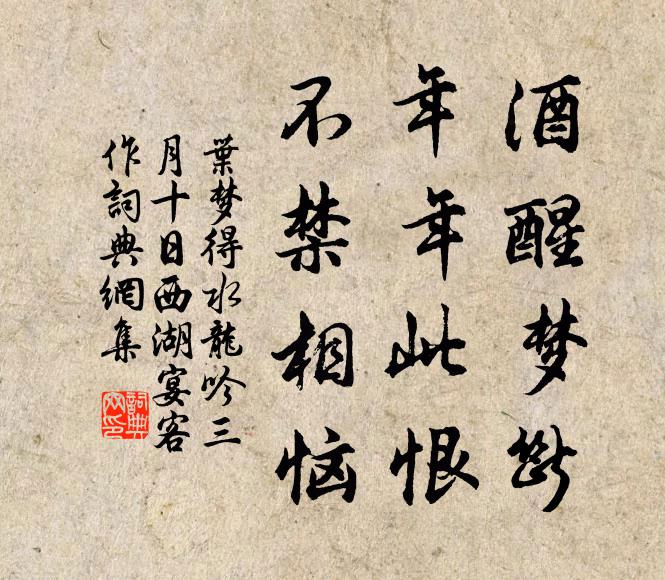 酒醒梦断
年年此恨
不禁相恼
葉梦得水龍吟三
月十日西湖宴客
作詞典網集
詞典网印